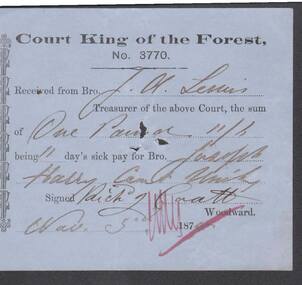 Court King of the Forest,
No. 3770.
Received from Bro. J. W. Lewis
Treasurer of the above Court, the sum
of One Pound 11/
being 11 day's sick pay for Bro. Joseph
Harry
Signed Rich^d J Pratt
Woodward.
Nov. 187